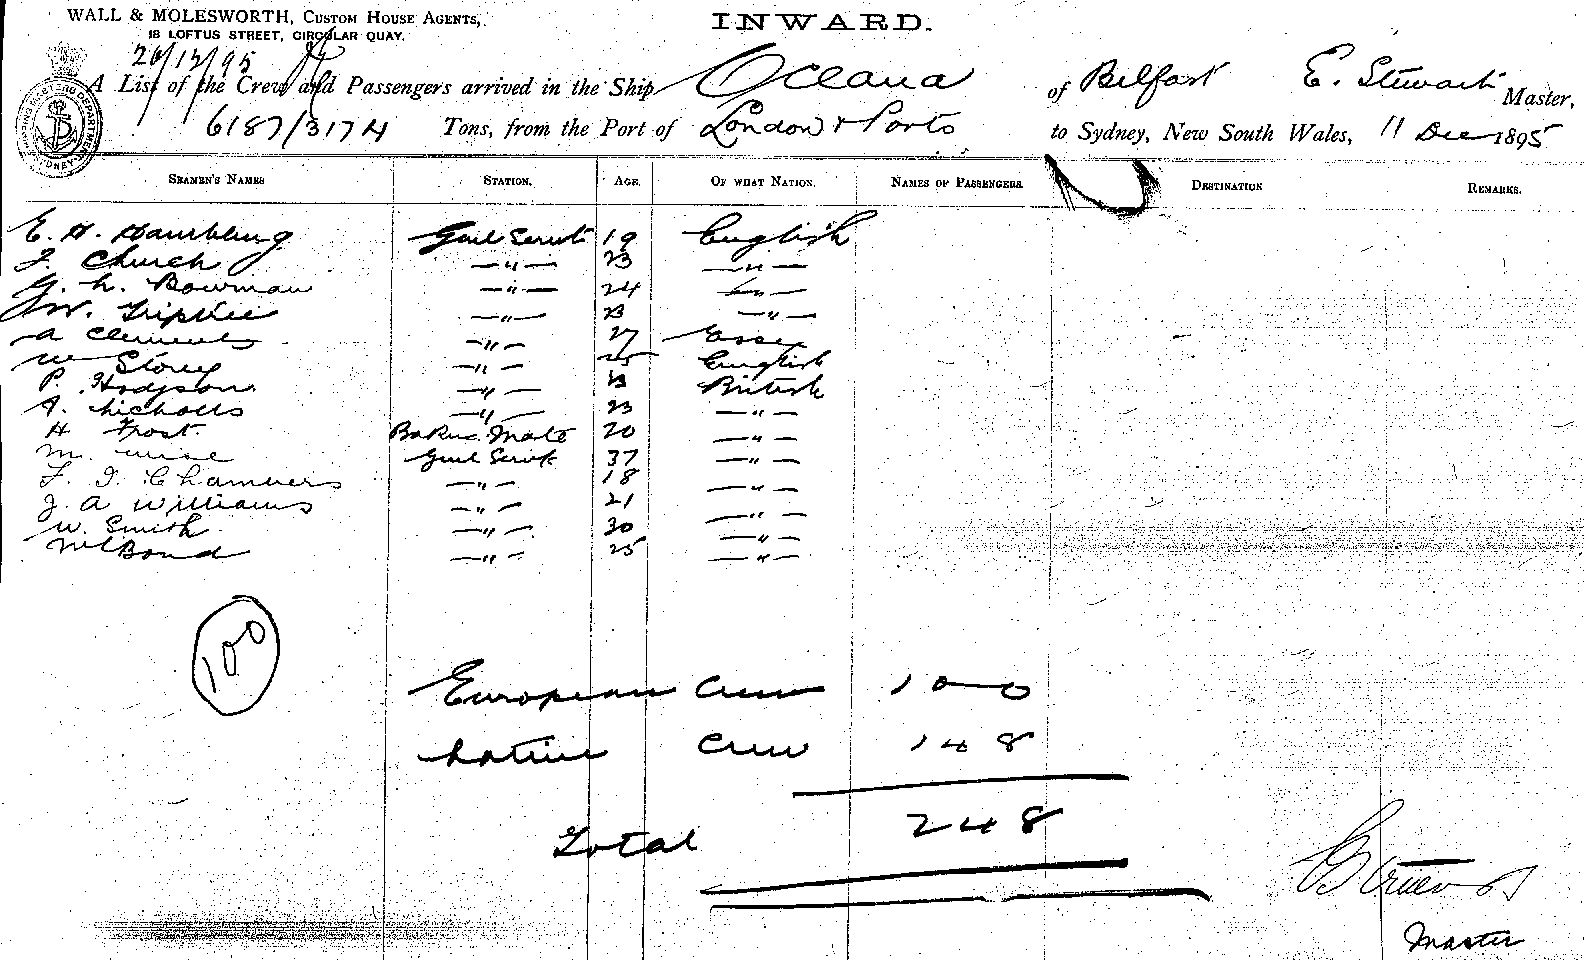 WALL & MOLESWORTH, CUSTOM HOUSE AGENTS,
18 LOFTUS STREET, CIRCULAR QUAY.
INWARD.
A List of the Crew and Passengers arrived in the Ship Oceana of Belfast E. Stewart Master,
6187/3174 Tons, from the Port of London & Ports to Sydney, New South Wales, 11 Dec 1895
SEAMEN'S NAMES STATION. AGE. OF WHAT NATION. NAMES OF PASSENGERS. DESTINATION REMARKS.
E. H. Hambling Genl Servt 19 English
J. Church —"— 23 —"—
G. H. Bowman —"— 24 —"—
W. —"— 23 —"—
A Clements —"— 27 Essex
W Storey —"— 25 English
P. Hodgson —"— British
A. Nicholls —"— 23 —"—
H Frost. Bakers Mate 20 —"—
M. Wise Genl Servt 37 —"—
F. I. Chambers —"— 18 —"—
J. A Williams —"— 21 —"—
W. Smith —"— 30 —"—
W Bond —"— 25 —"—
100
European Crew 100
Native Crew 148
Total 248
Master